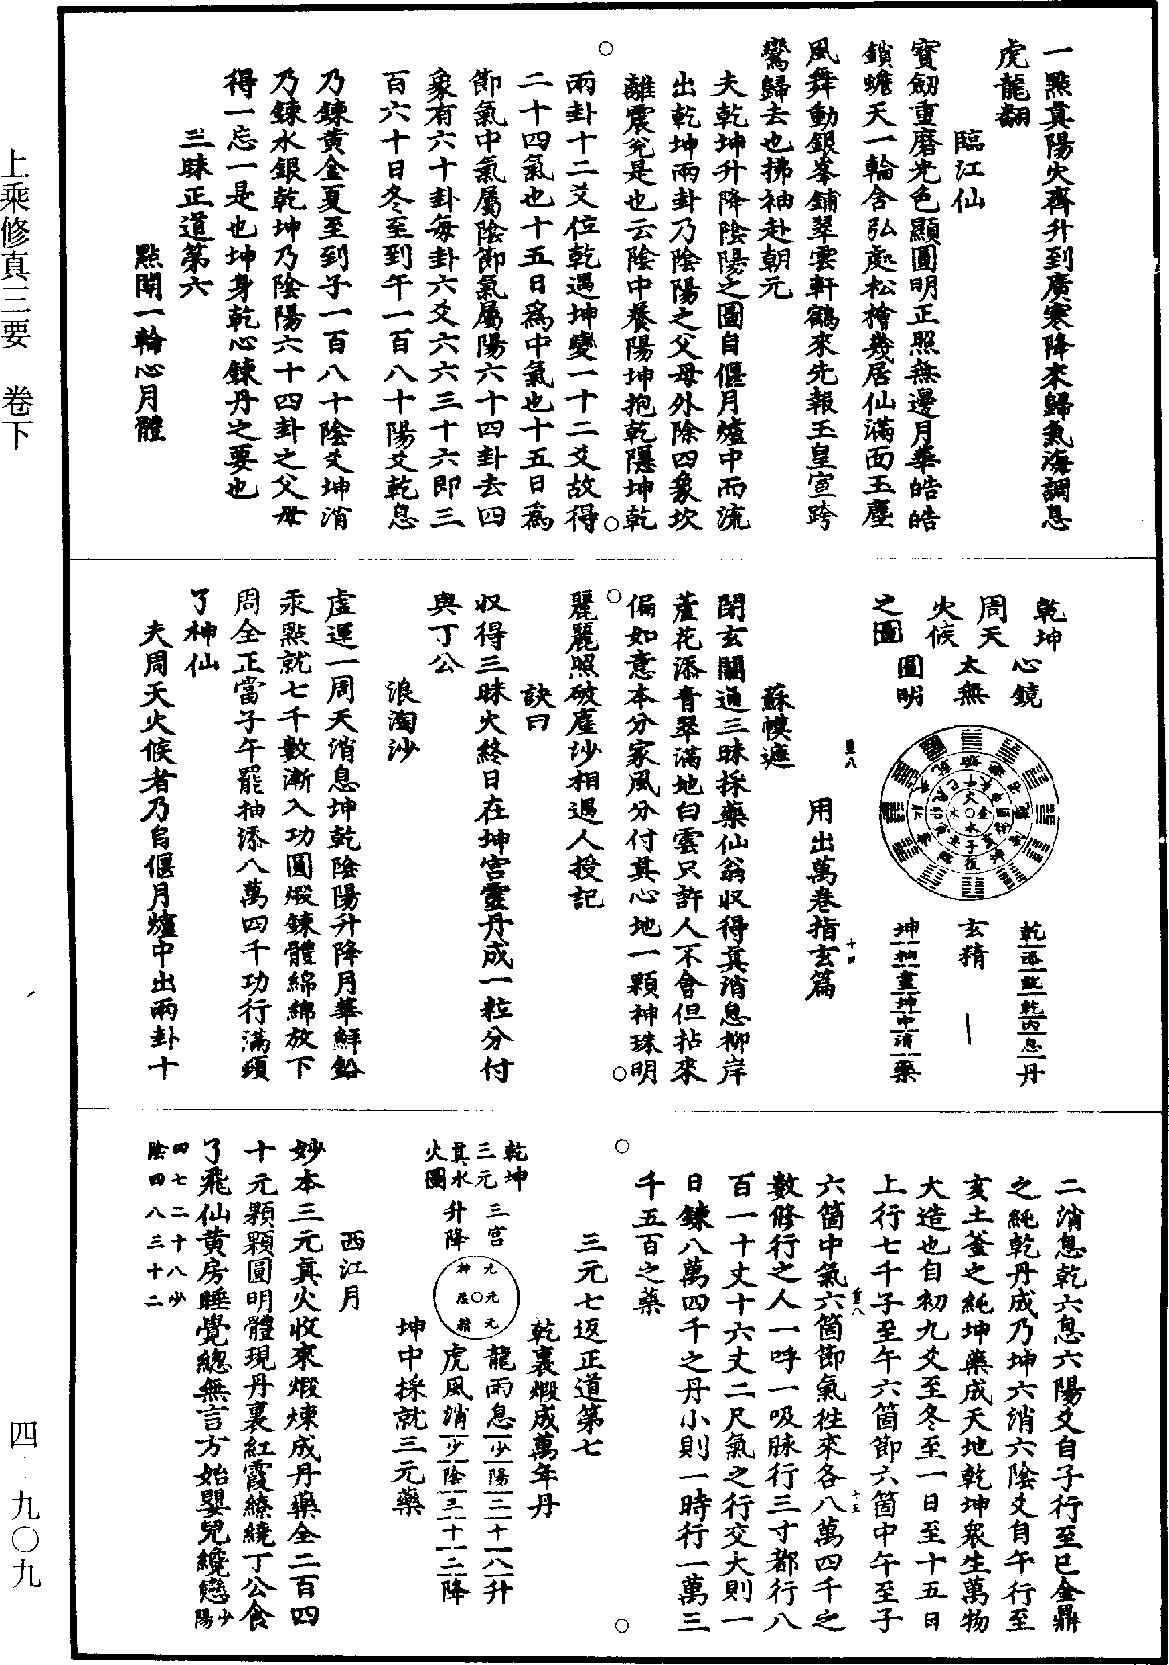 一點真陽火齊升到廣寒降來歸氣海調息
虎龍翻
臨江仙
寶劒重磨光色顯圓明正照無邊月華皓皓
鎖蟾天一輪含弘處松檜幾居仙滿面玉塵
風舞動銀峯鋪翠雲軒鶴來先報玉皇宣跨
鸞歸去也拂袖赴朝元
夫乾坤升降陰陽之圖自偃月爐中而流
出乾坤兩卦乃陰陽之父母外除四象坎
離震兌是也云陰中養陽坤抱乾隱坤乾
兩卦十二爻位乾遇坤變一十二爻故得
二十四氣也十五日為中氣也十五日為
節氣中氣屬陰節氣屬陽六十四卦去四
象有六十卦每卦六爻六六三十六即三
百六十日冬至到午一百八十陽爻乾息
乃鍊黃金夏至到子一百八十陰爻坤消
乃鍊水銀乾坤乃陰陽六十四卦之父母
得一忘一是也坤身乾心鍊丹之要也
三昧正道第六
點開一輪心月體
乾坤
周天
火候
之圖
心鏡
太無
圓明
乾添
乾內息丹
玄精
坤抽
坤中消藥
用出萬卷指玄篇
蘇幙遮
閉玄關通三昧採藥仙翁收得真消息柳岸
蘆花添青翠滿地白雲只許人不會但拈來
偏如意本分家風分付真心地一顆神珠明
麗麗照破塵沙相遇人授記
訣曰
収得三昧火終日在坤宮靈丹成一粒分付
與丁公
浪淘沙
虛運一周天消息坤乾陰陽升降月華鮮鉛
汞點就七千數漸入功圓煅鍊體綿綿放下
周全正當子午罷抽添八萬四千功行滿頭
了神仙
夫周天火候者乃自偃月爐中出兩卦十
二消息乾六息六陽爻自子行至巳金鼎
之純乾丹成乃坤六消六陰爻自午行至
亥土釜之純坤藥成天地乾坤衆生萬物
大造也自初九爻至冬至一日至十五日
上行七千子至午六箇節六箇中午至子
六箇中氣六箇節氣往來各八萬四千之
數脩行之人一呼一吸脉行三寸都行八
百一十丈十六丈二尺氣之行交大則一
日鍊八萬四千之丹小則一時行一萬三
千五百之藥
三元七返正道第七
乾裏煅成萬年丹
乾坤
三元
真水
火圖
三宮
升降
龍雨息少陽二十八升
虎風消少陰三十二降
坤中採就三元藥
西江月
妙本三元真火收來煅煉成丹藥全二百四
十元顆顆圓明體現丹裏紅霞繚繞丁公食
了飛仙黃房睡覺總無言方始嬰兒纔戀少
陽
四七二十八少
陰四八三十二
上乘修真三要　卷下
四·九〇九